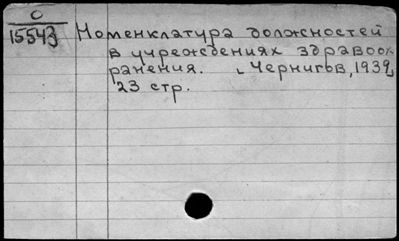 О
15543 Номенклатура должностей
в учреждениях здравоох-
ранения. [Чернигов, 1939]
23 стр.